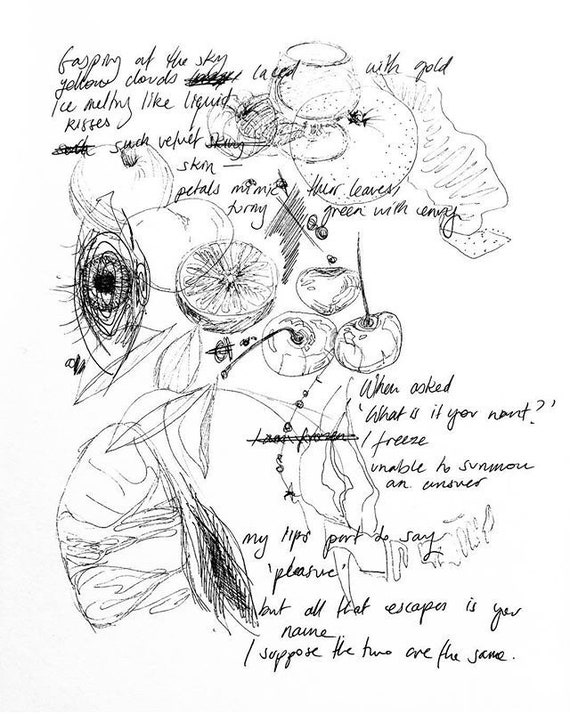 Gasping at the sky
yellow clouds laced with gold
Ice melting like liquid
kisses
such velvet
skin —
petals mimic their leaves,
turning green with envy
When asked
'What is it you want?'
I am frozen I freeze
unable to summon
an answer
my lips part to say,
'pleasure'
but all that escapes is your
name
I suppose the two are the same.